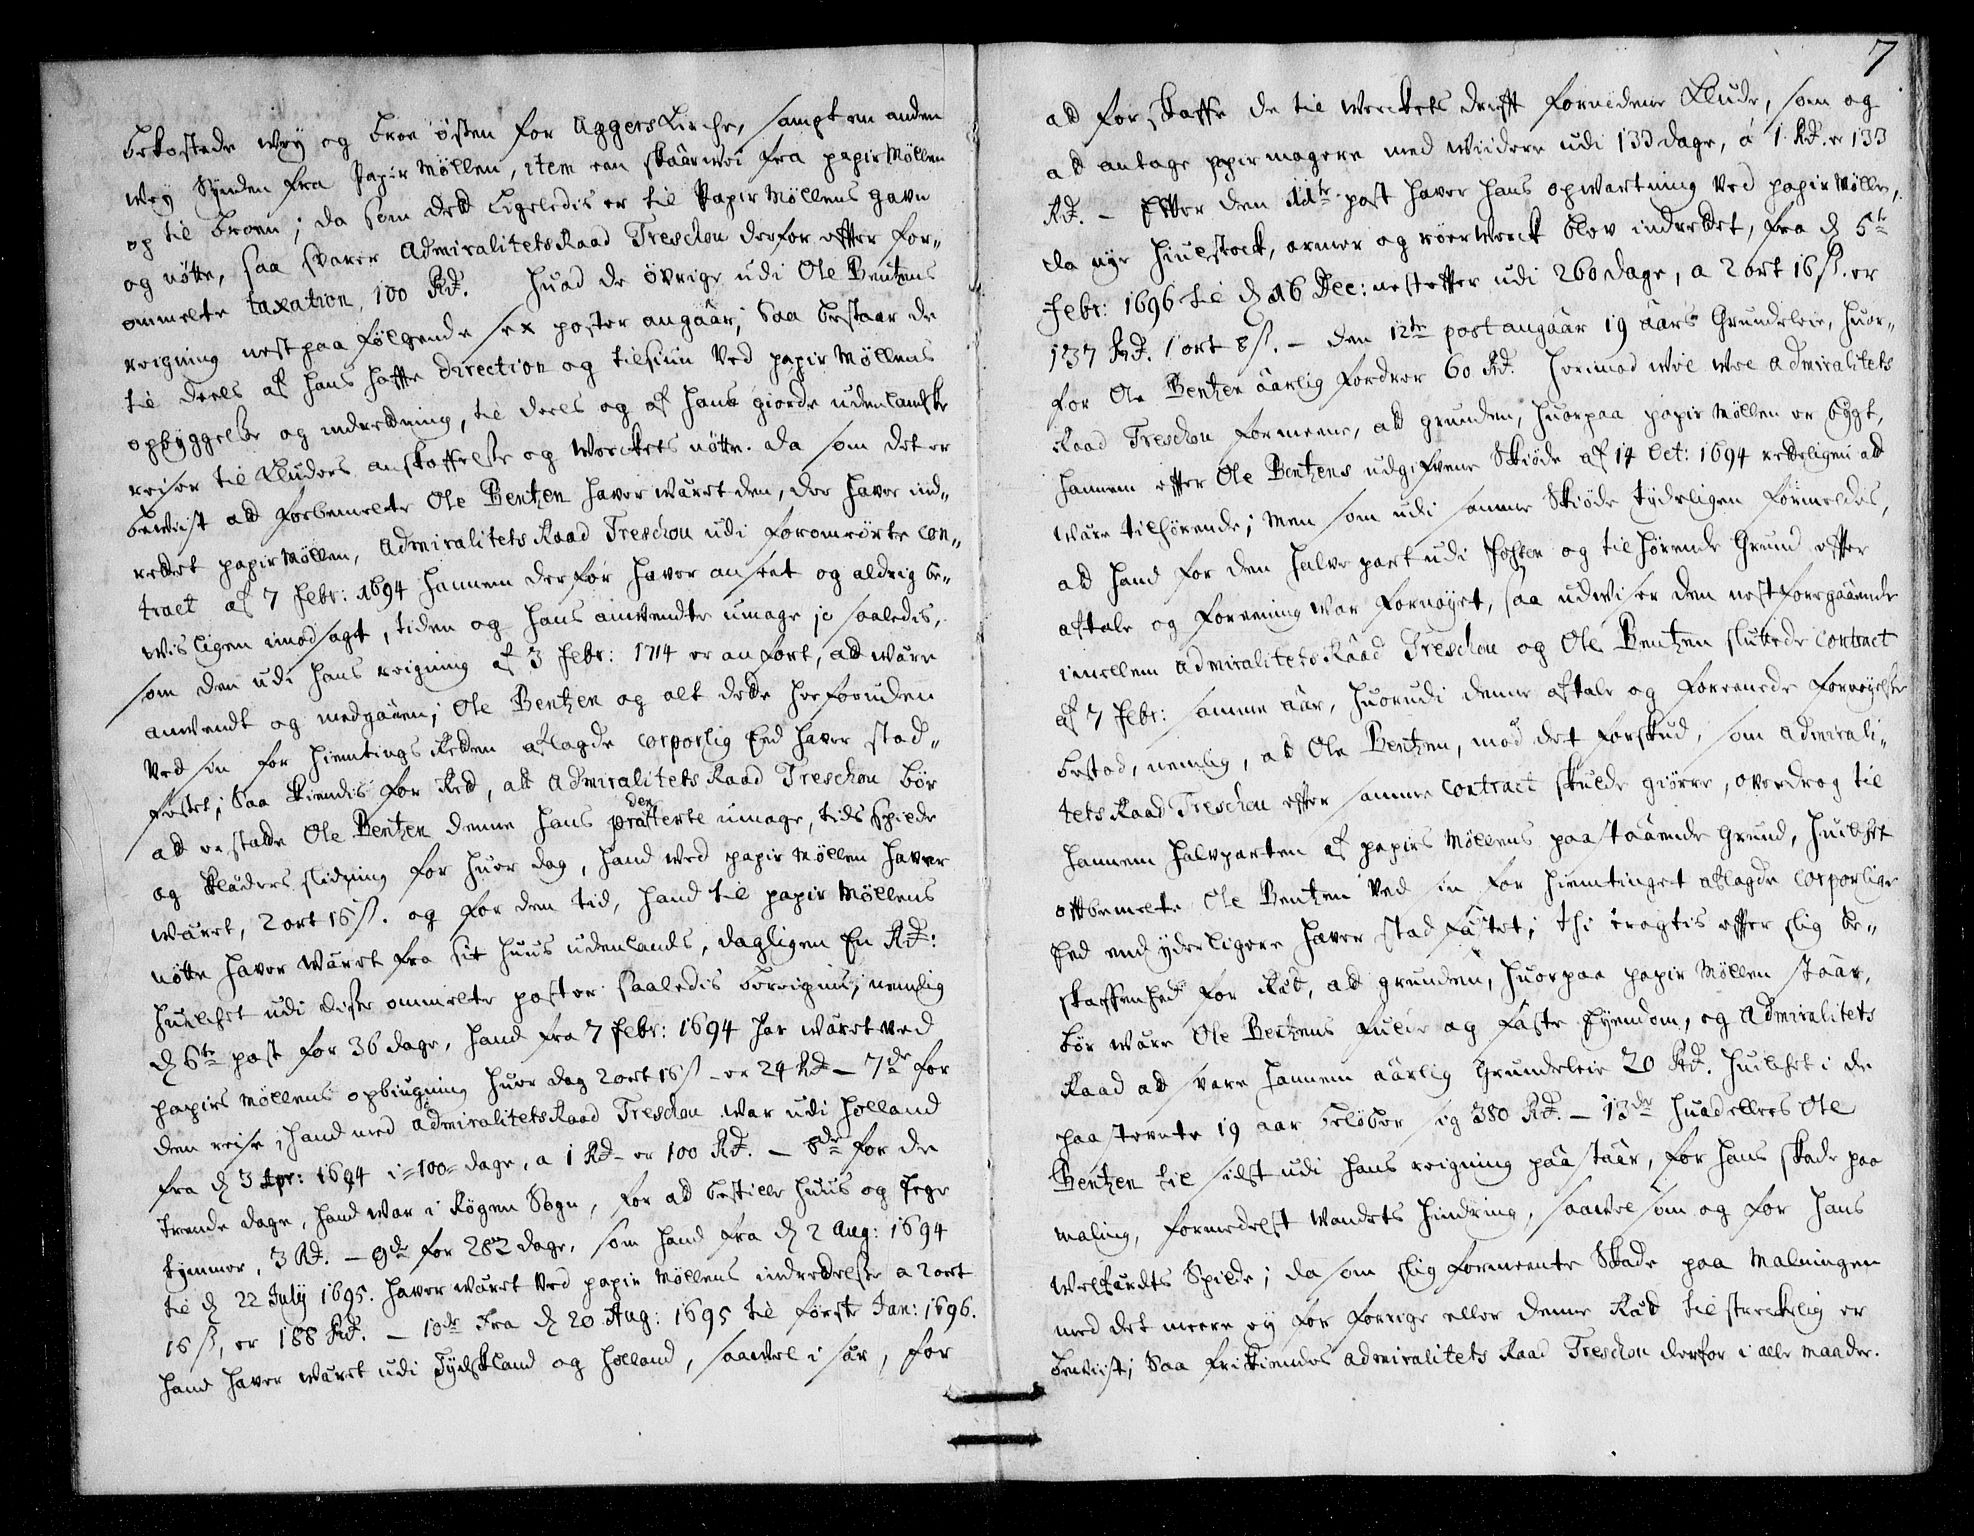 bekostede wey og broe østen for Aggers Kirche, sampt en anden
wey Synden fra Papir Møllen, item een skaarwei fra papir Møllen
op til broen; da som det Ligeledis er til Papir Møllens gavn
og nøtte, saa svarer Admiralitets Raad Treschou derfor efter for-
ommelte taxation, 100 Rd. Huad de øvrige udi Ole Bentzens
reigning nest paa følgende sex poster angaar; Saa bestaar de
til deels af hans hafte direction og tilsiun ved papir Møllens
opbyggelse og indretning, til deels og af hans giorde udenlandske
reiser til Kluders anskaffelse og werckets nøtte. da som det er
bewiist at forbemelte Ole Bentzen haver wæret den, der haver ind-
rettet papir Møllen, Admiralitets Raad Treschou udi foromrørte con-
tract af 7 Febr: 1694 hannem derfor haver anseet og aldrig be-
wisligen imodsagt, tiden og hans anwendte umage jo saaledis,
som den udi hans reigning af 3 Febr: 1714 er anført, at wære
anwendt og medgaaen; Ole Bentzen og alt dette herforuden
ved sin for Hiemtings Retten aflagde corporlig Eed haver stad-
fæstet; Saa kiendis for Ret, at Admiralitets Raad Treschou bør
at erstatte Ole Bentzen denne hans prætenderte umage, tids spilde
og klæders slidning for huer dag, hand wed papir Møllen haver
wæret, 2 ort 16 s. og for den tid, hand til papir Møllens
nøtte haver wæret fra sit huus udenlands, dagligen En Rd:
huilchet udi disse ommelte poster saaledis beregnis; nemlig
d 6te post for 36 dage, hand fra 7 Febr: 1694 har wæret ved
papirs Møllens opbiugning huer dag 2 ort 16 s - er 24 Rd - 7de for
den reise, hand med Admiralitets Raad Treschou war udi Holland
fra d 3 Apr: 1694 i =100= dage, a 1 Rd - er 100 Rd. - 8de for de
trende dage, hand war i Røgen Sogn, for at bestille huus og Sage
tømmer, 3 Rd. - 9de for 282 dage, som hand fra d 2 Aug: 1694
til d 22 July 1695. haver wæret ved papir Møllens indrettelse a 2 ort
16 s, er 188 Rd. - 10de Fra d 20 Aug: 1695 til første Jan: 1696.
hand haver wæret udi Tydskland og Holland, saavel i sær, for
7
at forskaffe de til werckets drift fornødene Klude, som og
at antage papirmagere med widere udi 133 dage, á 1 Rd. er 133
Rd. - Efter den 11te post haver hans opwartning ved papir Møllen,
da nye Hiulstock, armer og røerwerck blev indrettet, fra d 5te
Febr: 1696 til d 16 Dec: nestefter udi 260 dage, a 2 ort 16 s. er
137 Rd. 1 ort 8 s. - den 12te post angaar 19 aars Grundeleie, huor-
for Ole Bentzen aarlig fordrer 60 Rd. Herimod wil vel Admiralitets
Raad Treschou formeene, at grunden, huorpaa papir Møllen er bygt,
hannem efter Ole Bentzens udgifvene Skiøde af 14 Oct: 1694 retteligen at
wære tilhørende; Men som udi samme Skiøde tydeligen formeldis,
at hand for den halve part udi Fossen og tilhørende Grund efter
aftale og forening war fornøyet, saa udwiser den nestforegaaende
imellem Admiralitets Raad Treschou og Ole Bentzen sluttede contract
af 7 Febr: samme aar, huorudi denne aftale og foreenede fornøyelse
bestod, nemlig, at Ole Bentzen, mod det forskud, som Admirali-
tets Raad Treschou efter samme contract skulde giøre, overdrog til
hannem halvparten af papirs Møllens paastaaende Grund, huilket
oftbemelte Ole Bentzen ved sin for hiemtinget aflagde corporlige
Eed end yderligere haver stadfæstet; thi eragtis efter slig be-
skaffenhed for Ræt, at grunden, huorpaa papir Møllen staar,
bør wære Ole Bentzens fulde og faste Eyendom, og Admiralitets
Raad at svare hannem aarlig Grundeleie 20 Rd. huilchet i de
paastevnte 19 aar beløber sig 380 Rd. - 13de huad ellers Ole
Bentzen til sidst udi hans reigning paastaar, for hans skade paa
maling, formedelst Vandets hindring, saavel som og for hans
welfærdts Spilde; da som slig formeente Skade paa Malningen
med det meere ey for forrige eller denne Ræt tilstreckelig er
bewiist; Saa frikiendes Admiralitets Raad Treschou derfor i alle maader.